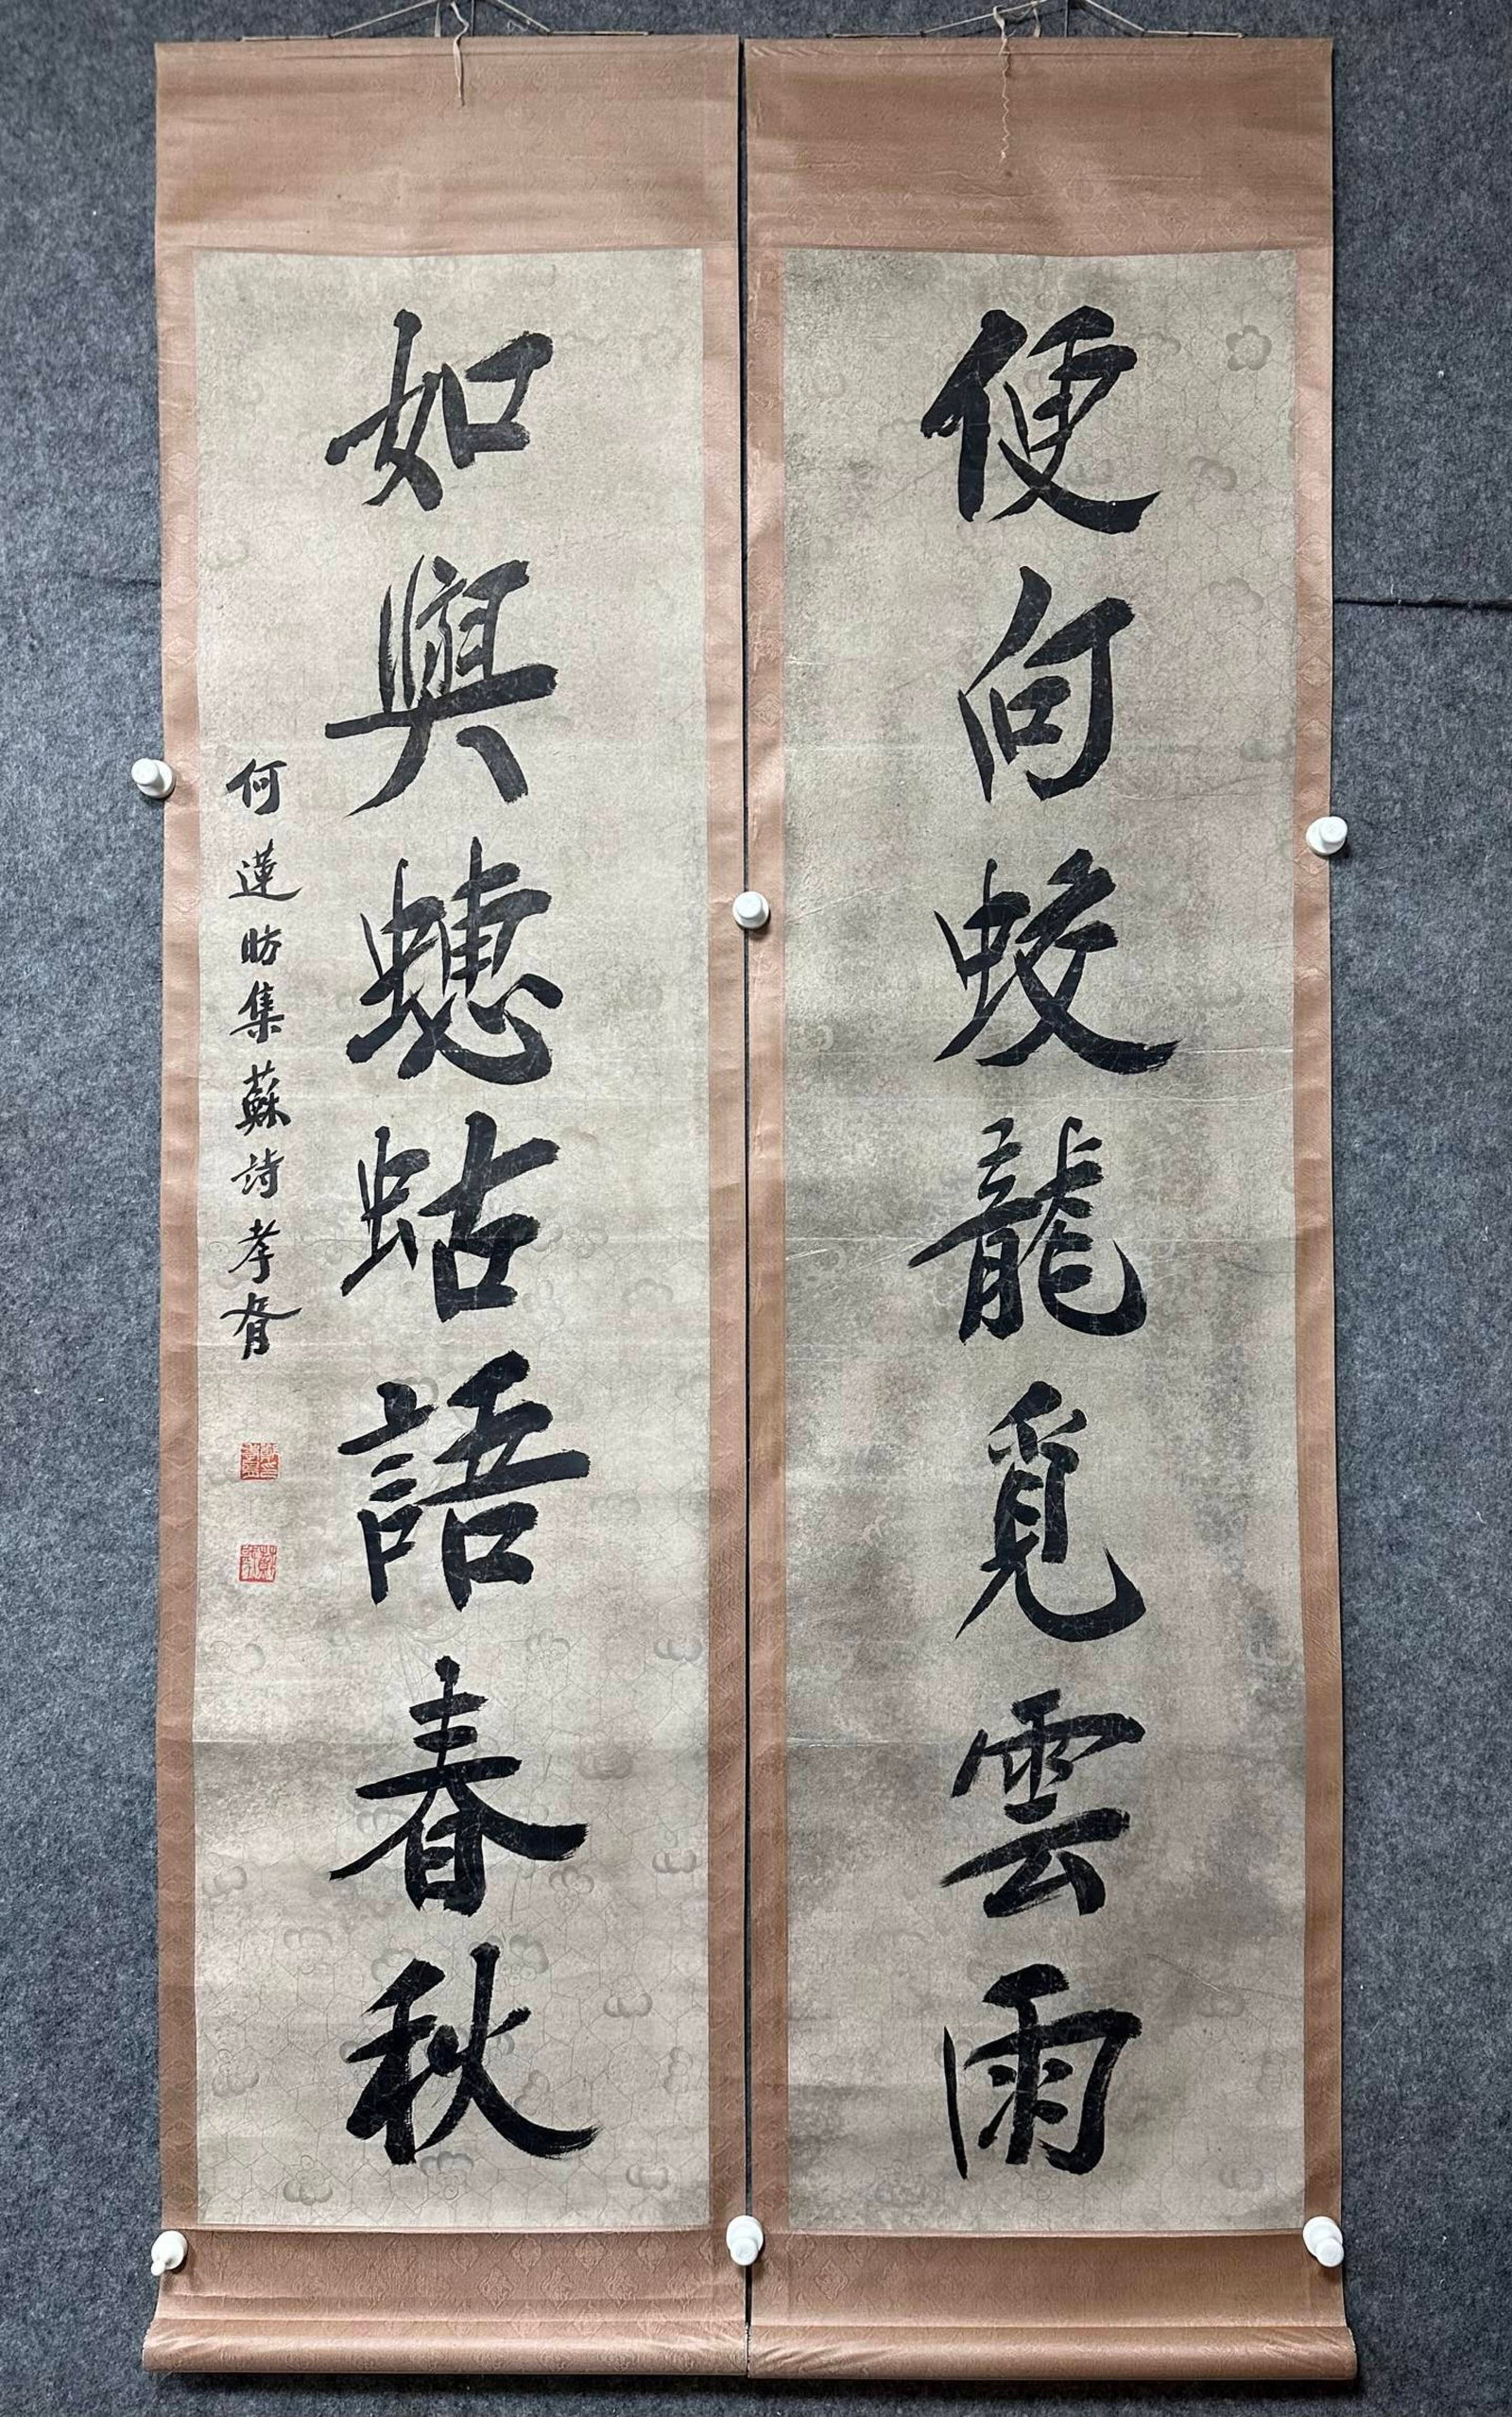 便向蛟龍覓雲雨
如與蟪蛄語春秋
何蓮昉集蘇詩 孝胥